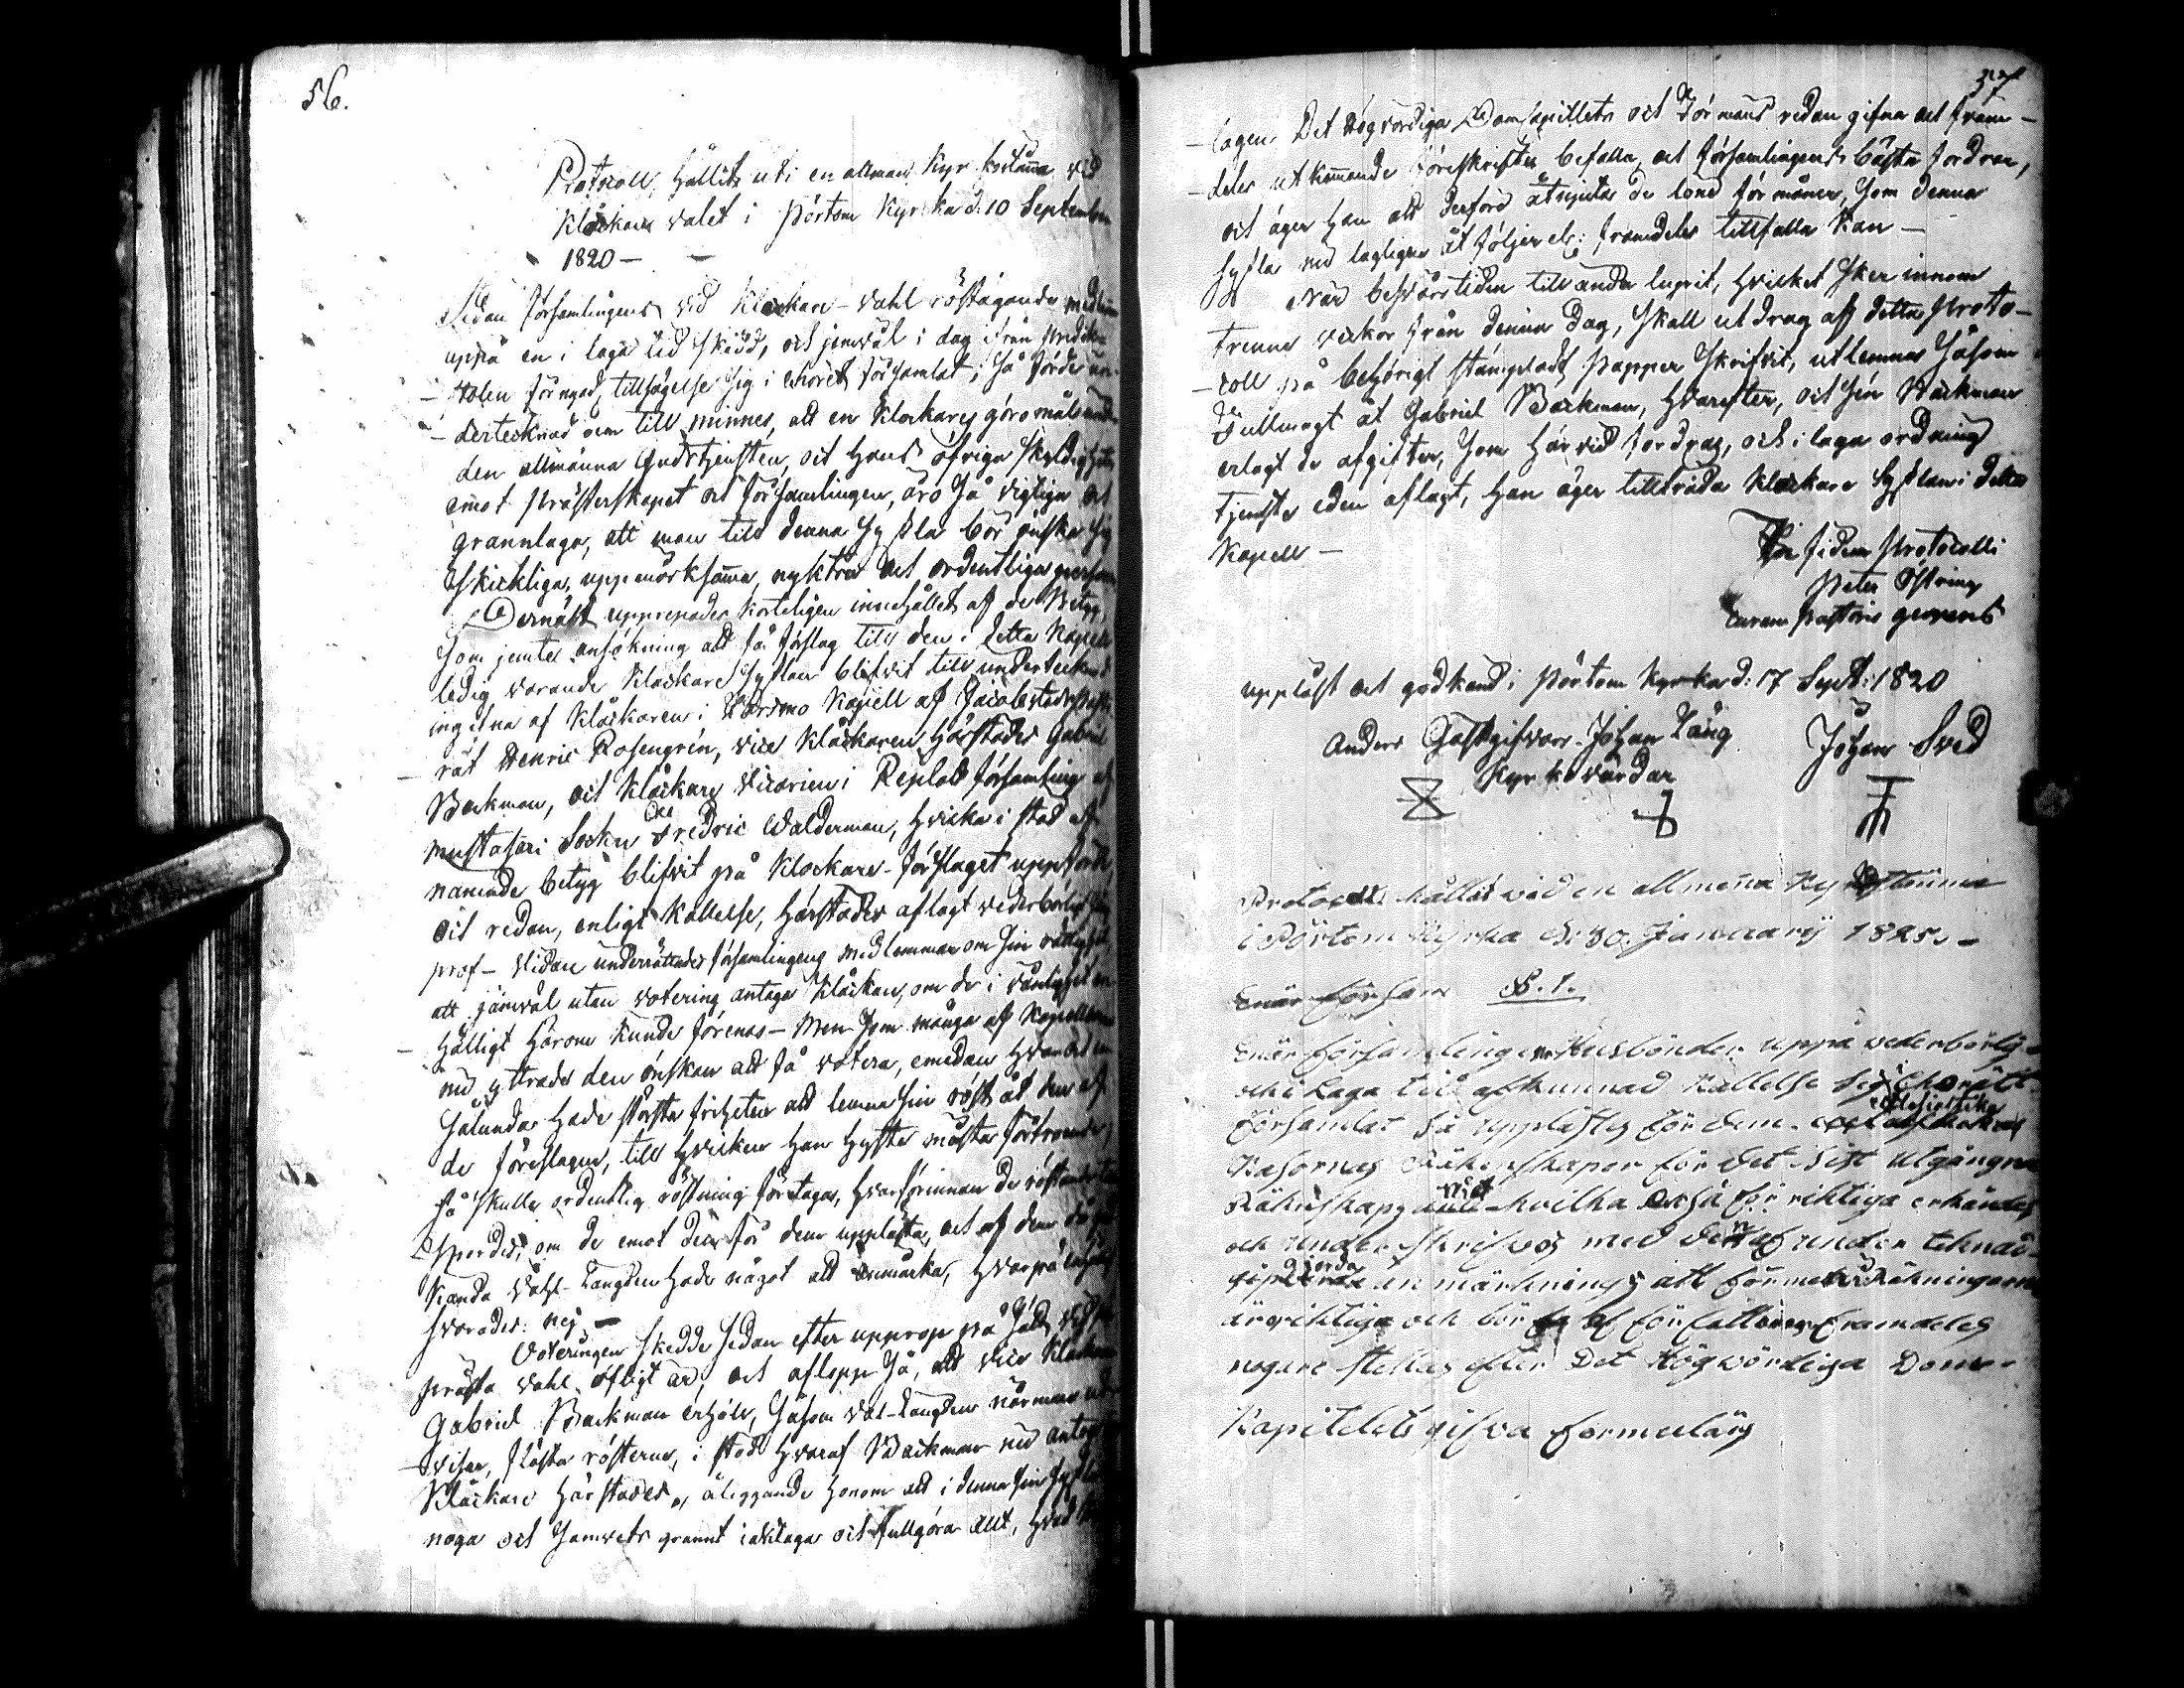 56.
Protocoll, hållits uti en allmän Kyrkostäma vid
Klåckare valet i Pörtom Kyrka d: 10 September
1820 —
Sedan Församlingens vid Klockare-Vahl röstägande medlem
uppå en i laga tid skedd, och jemväl i dag ifrån Prediko-
-stolen förnyad, tillsägelse sig i choret församlat; Så förde un-
-dertecknad dem till minnes, att en Klockares göromål und
den allmänna Gudstjensten, och hans öfriga skyldighete
emot Prästerskapet och Församlingen, äro så vigtiga och
grannlaga, att man till denna Sysla bör önska sig
skickliga, uppmärksamma, nyktra och ordentliga person
Dernäst upprepades korteligen innehållet af de Betyg,
Som jemte ansökning att få förslag till den i detta Kapell
ledig varande Klockare Syslan blifvit till undertecknad
ingifna af Klåckaren i Kapell af Jacobstads Past
rat Henric Rosengrén, vice Klåckaren härstädes Gabriel
Backman, och Klåckare vicarien i Replot församling af
Mustasari Sockn Fredric Walderman, hvilka i stöd af
nämnde betyg blifvit på Klockare-förslaget uppförde
och redan, enligt Kallelse, härstädes aflagt vederbörlig
prof — vidare underrättades församlingens medlemmar om sin rättighet
att jämväl utan votering antaga Klåckare, om de i
-hälligt härom kunde förenas — Men som många af Kapellboerne
nu yttrade den önskan att få votera, emedan hvar och en
sålunda hade största friheten att lemna sin röst åt den af
de föreslagne, till hvilken han hyste mästa förtroende,
så skulle ordentlig röstning företagas, hvarförinnan de röstande
spordes, om de emot den för dem upplästa, och af dem
kända Vahl-Längden hade något att anmärka, hvarpå
svarades: nej —
Voteringen skedde sedan efter upprop på sätt, vid
Prästa vahl öfligt är, och aflopp så, att vice Klockaren
Gabriel Backman erhölt, såsom Val-Längden närmare ut-
-visar, flästa rösterne, i stöd hvaraf Backman nu antog
Klåckare härstädes, åliggande honom att i denna sin Sysla
noga och samvets grannt iakttaga och fullgöra allt, hvad
57
-lagen Det Högvördiga DomCapitlets och Förmans redan gifna och fram-
-deles utkommande föreskrifter befalla, och församlingens bästa fordrar,
och äger han att derföre åtnjuta de löne förmåner, som denna
Sysla nu lagligen åtföljer el: framdeles tillfalla kan —
När besvärstiden till ända lupit, hvilket sker innom
trenne veckor från denna dag, skall utdrag af detta Proto-
-coll på behörigt stämpladt Papper Skrifvit, utlemnas såsom
Fullmagt åt Gabriel Backman, hvarefter, och sen Backman
erlagt de afgifter, som härvid fordras, och i laga ordning
tjenste eden aflagt, han äger tillträda Klockare Syslan i detta
Kapell —
In fidem Protocolli
Peter Östring
Curam Pastoris gerens
uppläst och godkänd i Pörtom Kyrka d: 17 Sept: 1820
Anders Gästgifvars Johan Lång Johan Sved
Kyrkovärdar
Protocoll hållit vid en allmena Kyrkostämma
i Pörtom Kyrka d: 30. Januarij 1825. —
Enär Försam §. 1.
Enär församlingens Husbönder uppå vederbörlig
och i Laga tid afkunnad kallelse sig i Chorätt
församlat så upplästes för dem ecclesiastika
Kassornas Räkenskaper för det sist utgångna
Räkenskaps året hvilka också för riktiga erkändes
och underskrifvos med den af under teknad
gjorda an märkning att förmelda Räkningarne
är riktiga och bör af författaren framdeles
nogare ställas efter Det Högvördiga Dom-
Kapitelets gifva formulär